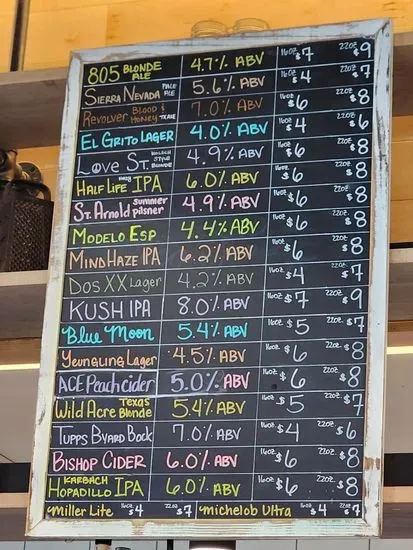 805 BLONDE ALE 4.7% ABV 16oz $7 22oz $9
SIERRA NEVADA PALE ALE 5.6% ABV 16oz $4 22oz $7
REVOLVER BLOOD & HONEY 7.0% ABV 16oz $6 22oz $8
EL GRITO LAGER 4.0% ABV 16oz $4 22oz $6
LOVE ST. KOLSCH STYLE BLONDE 4.9% ABV 16oz $6 22oz $8
HALF LIFE HAZY IPA 6.0% ABV 16oz $6 22oz $8
ST. ARNOLD Summer pilsner 4.9% ABV 16oz $6 22oz $8
MODELO ESP 4.4% ABV 16oz $6 22oz $8
MIND HAZE IPA 6.2% ABV 16oz $6 22oz $8
DOS XX Lager 4.2% ABV 16oz $4 22oz $7
KUSH IPA 8.0% ABV 16oz $7 22oz $9
Blue Moon 5.4% ABV 16oz $5 22oz $7
YEUNGLING LAGER 4.5% ABV 16oz $6 22oz $8
ACE Peach cider 5.0% ABV 16oz $6 22oz $8
Wild Acre Texas Blonde 5.4% ABV 16oz $5 22oz $7
TUPPS BYARD BOCK 7.0% ABV 16oz $4 22oz $6
BISHOP CIDER 6.0% ABV 16oz $6 22oz $8
KARBACH HOPADILLO IPA 6.0% ABV 16oz $6 22oz $8
Miller Lite 16oz $4 22oz $7 Michelob Ultra 16oz $4 22oz $7